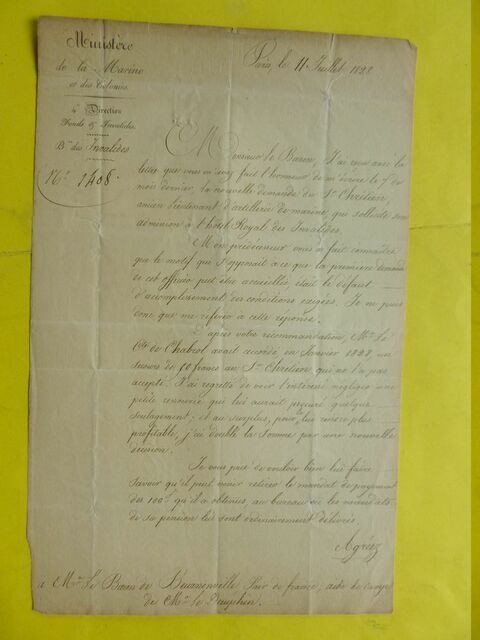 Ministère
de la Marine
et des Colonies.
Direction
Fonds & Invalides.
Bau des Invalides
No. 1408.
Paris, le 11 Juillet 1828
Monsieur le Baron, J'ai reçu avec la
lettre que vous m'avez fait l'honneur de m'écrire le 7 du
mois dernier, la nouvelle demande du Sr. Chrétien,
ancien lieutenant d'artillerie de marine, qui sollicite son
admission à l'hôtel Royal des Invalides.
Mon prédécesseur vous a fait connaître
que le motif qui s'opposait à ce que la première demande
de cet officier put être accueillie, était le défaut
d'accomplissement des conditions exigées. Je ne puis
donc que me référer à cette réponse.
D'après votre recommandation, Mr. le
Cte. de Chabrol avait accordé, en Janvier 1828, un
secours de 50 francs au Sr. Chrétien, qui ne l'a pas
accepté. J'ai regretté de voir l'intéressé négliger une
petite ressource qui lui aurait procuré quelque
soulagement; et au surplus, pour la lui rendre plus
profitable, j'ai doublé la somme par une nouvelle
décision.
Je vous prie de vouloir bien lui faire
savoir qu'il peut venir retirer le mandat de payement
des 100f. qu'il a obtenus, au bureau où les mandats
de sa pension lui sont ordinairement délivrés.
Agréez
à Mr. le Baron de Pair de france, aide de camp
de Mr. le Dauphin.